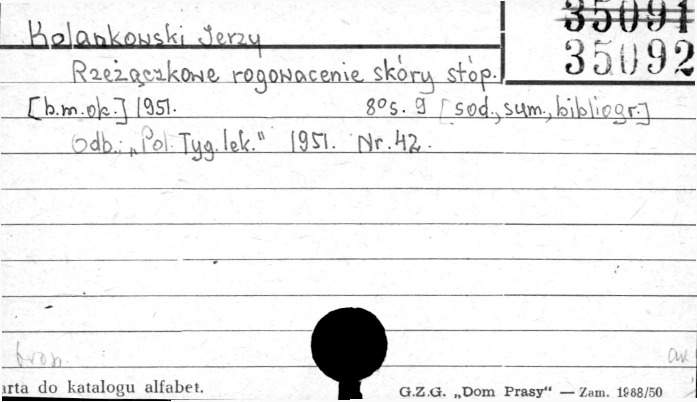 35091
35092
Kolankowski Jerzy
Rzeżączkowe rogowacenie skóry stóp.
[b.m.ok.] 1951. 8° s. 9 [sod., sum., bibliogr.]
Odb.: „Pol. Tyg. lek.“ 1951. Nr. 42.
brop.
arta do katalogu alfabet.
G.Z.G. „Dom Prasy“ — Zam. 1968/50